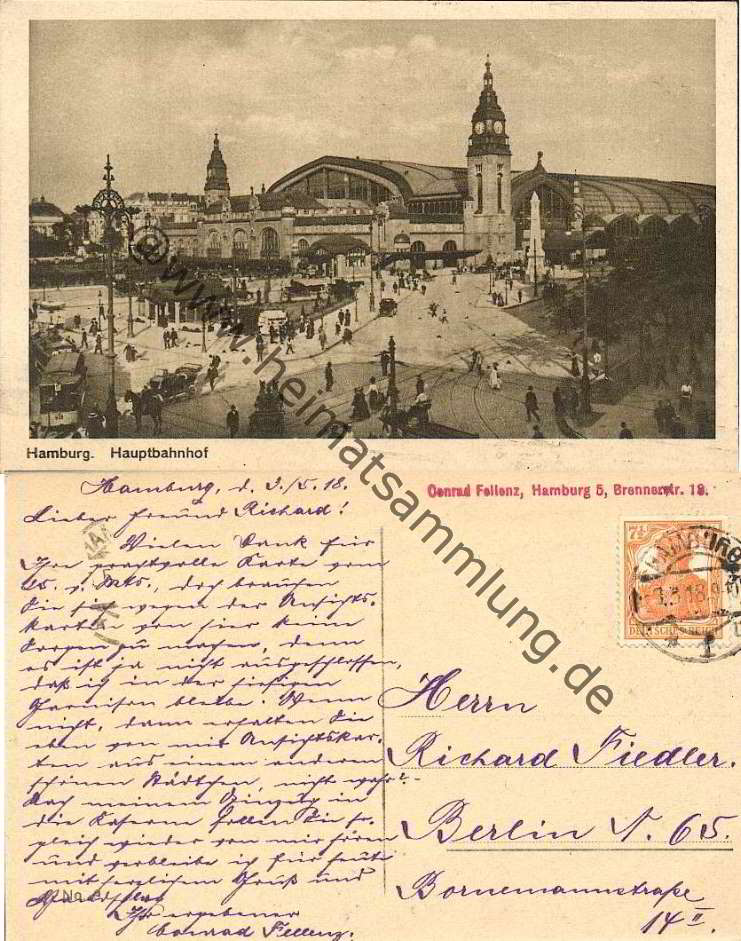 Hamburg. Hauptbahnhof
@www.heimatsammlung.de
Conrad Fellenz, Hamburg 5, Brennerstr. 18.
Hamburg, d. 3./5.18.
Lieber Freund Richard!
Vielen Dank für
Ihre prachtvolle Karte vom
25. v. Mts., doch brauchen
Sie sich wegen der Ansichts-
karten von hier keine
Sorgen zu machen, denn
es ist ja nicht ausgeschlossen,
daß ich in der hiesigen
Garnison bleibe. Wenn
nicht, dann erhalten Sie
eben von mir Ansichtskar-
ten aus einem anderen
schönen Städtchen, nicht wahr?-
Nach meinem Einzug in
die Kaserne sollen Sie so-
gleich wieder von mir hören
und verbleibe ich für heute
mit herzlichem Gruß und
Ihr ergebener
Conrad Fellenz.
7½
DEUTSCHES REICH
HAMBURG
3.5.18.
1
Herrn
Richard Fiedler.
Berlin N. 65.
Bornemannstraße
14 II